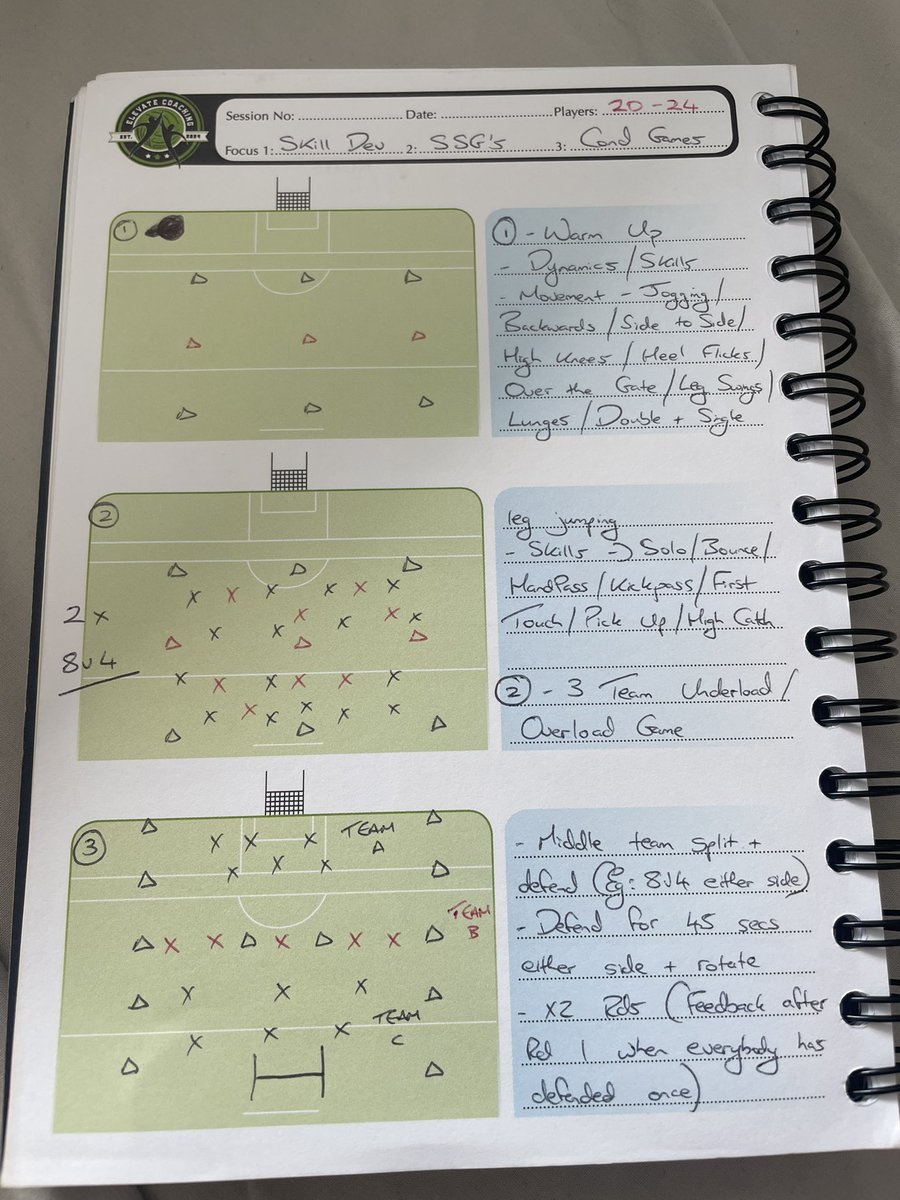 ELEVATE COACHING
EST. 2024
Session No: Date: Players: 20-24
Focus 1: Skill Dev 2: SSG's 3: Cond Games
1
① - Warm Up
- Dynamics / Skills
- Movement - Jogging /
Backwards / Side to Side /
High Knees / Heel Flicks /
Over the Gate / Leg Swings /
Lunges / Double + Single
2
2 x
8v4
leg jumping
- Skills → Solo / Bounce /
HandPass / Kickpass / First
Touch / Pick Up / High Catch
② - 3 Team Underload /
Overload Game
3
TEAM
A
TEAM
B
TEAM
C
- Middle team split +
defend (Eg: 8v4 either side)
- Defend for 45 secs
either side + rotate
- x2 Rds (Feedback after
Rd 1 when everybody has
defended once)